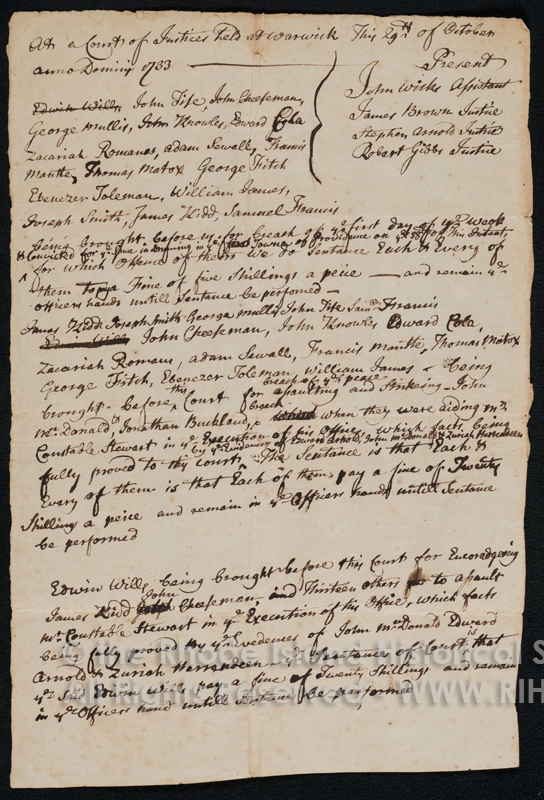 Att a Court of Justices held at Warwick This 29th of October
anno Domini 1733
Present
John Wicks Assistant
James Brown Justice
Stephen Arnold Justice
Robert Gibbs Justice
Edwin Wills, John Fife, John Cheeseman,
George Mullis, John Knowles, Edward Cola
Zacariah Romans, adam Sewall, Francis
Mantle, Thomas Matox George Fitch
Ebenezer Toleman, William James,
Joseph Smith, James Kidd, Samuel Francis
being brought before us for breach of ye first day of ye week
& Convicted for ye same in ye Town of Providence on ye 28 of This Instant
for which offence of theirs we do Sentance Each & Every of
them to pay a Fine of five Shillings a peice — and remain in ye
officers hands untill Sentance be performed —
James Kidd Joseph Smith George mullis John Fife Saml Francis
Edwin Wills John Cheeseman, John Knowles Edward Cola,
Zacariah Romans, adam Sewall, Francis mantle, Thomas Matox
George Fitch, Ebenezer Toleman, William James — being
breach of ye peace
brought before this Court for asaulting and Strikeing John
McDonald Jonathan Buckland, when they were aiding mr
Constable Stewart in ye Execution of his Office, which facts being
by ye Evidences of Edward Arnold, John McDonald & Zuriah Harrendeen
fully proved to this Court, The Sentance is that Each &
Every of them is that Each of them pay a fine of Twenty
Shilling a peice and remain in ye Officers hands untill Sentance
be performed
Edwin Wills being brought before this Court for Encoradgeing
James Kidd John Cheeseman, and Thirteen others to asault
mr Constable Stewart in ye Execution of his Office, which facts
being fully proved by ye Evedences of John McDonald Edward
Arnold & Zuriah Harrendeen ye Sentance of Court is that
ye said Edwin Wills pay a fine of Twenty Shillings and remain
in ye Officers hand untill Sentance be performed
© The Rhode Island Historical S
All Rights Reserved - WWW.RIH